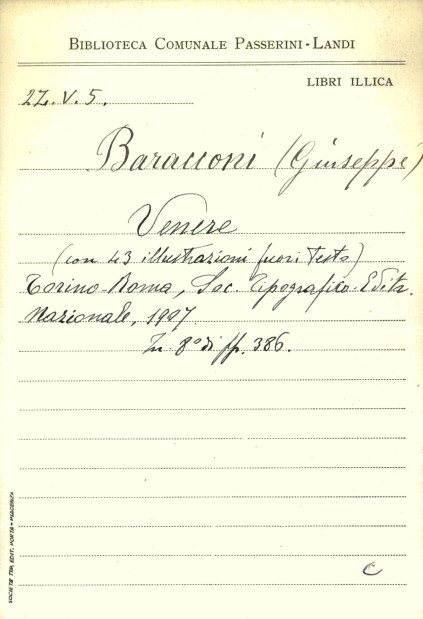 BIBLIOTECA COMUNALE PASSERINI-LANDI
LIBRI ILLICA
2Z.V.5.
Baracconi (Giuseppe)
Venere
(con 43 illustrazioni fuori testo)
Torino-Roma, Soc. Tipografico-Editr.
Nazionale, 1907
In 8° di pp. 386.
C
SOCIETÀ TIP. EDIT. PORTA - PIACENZA